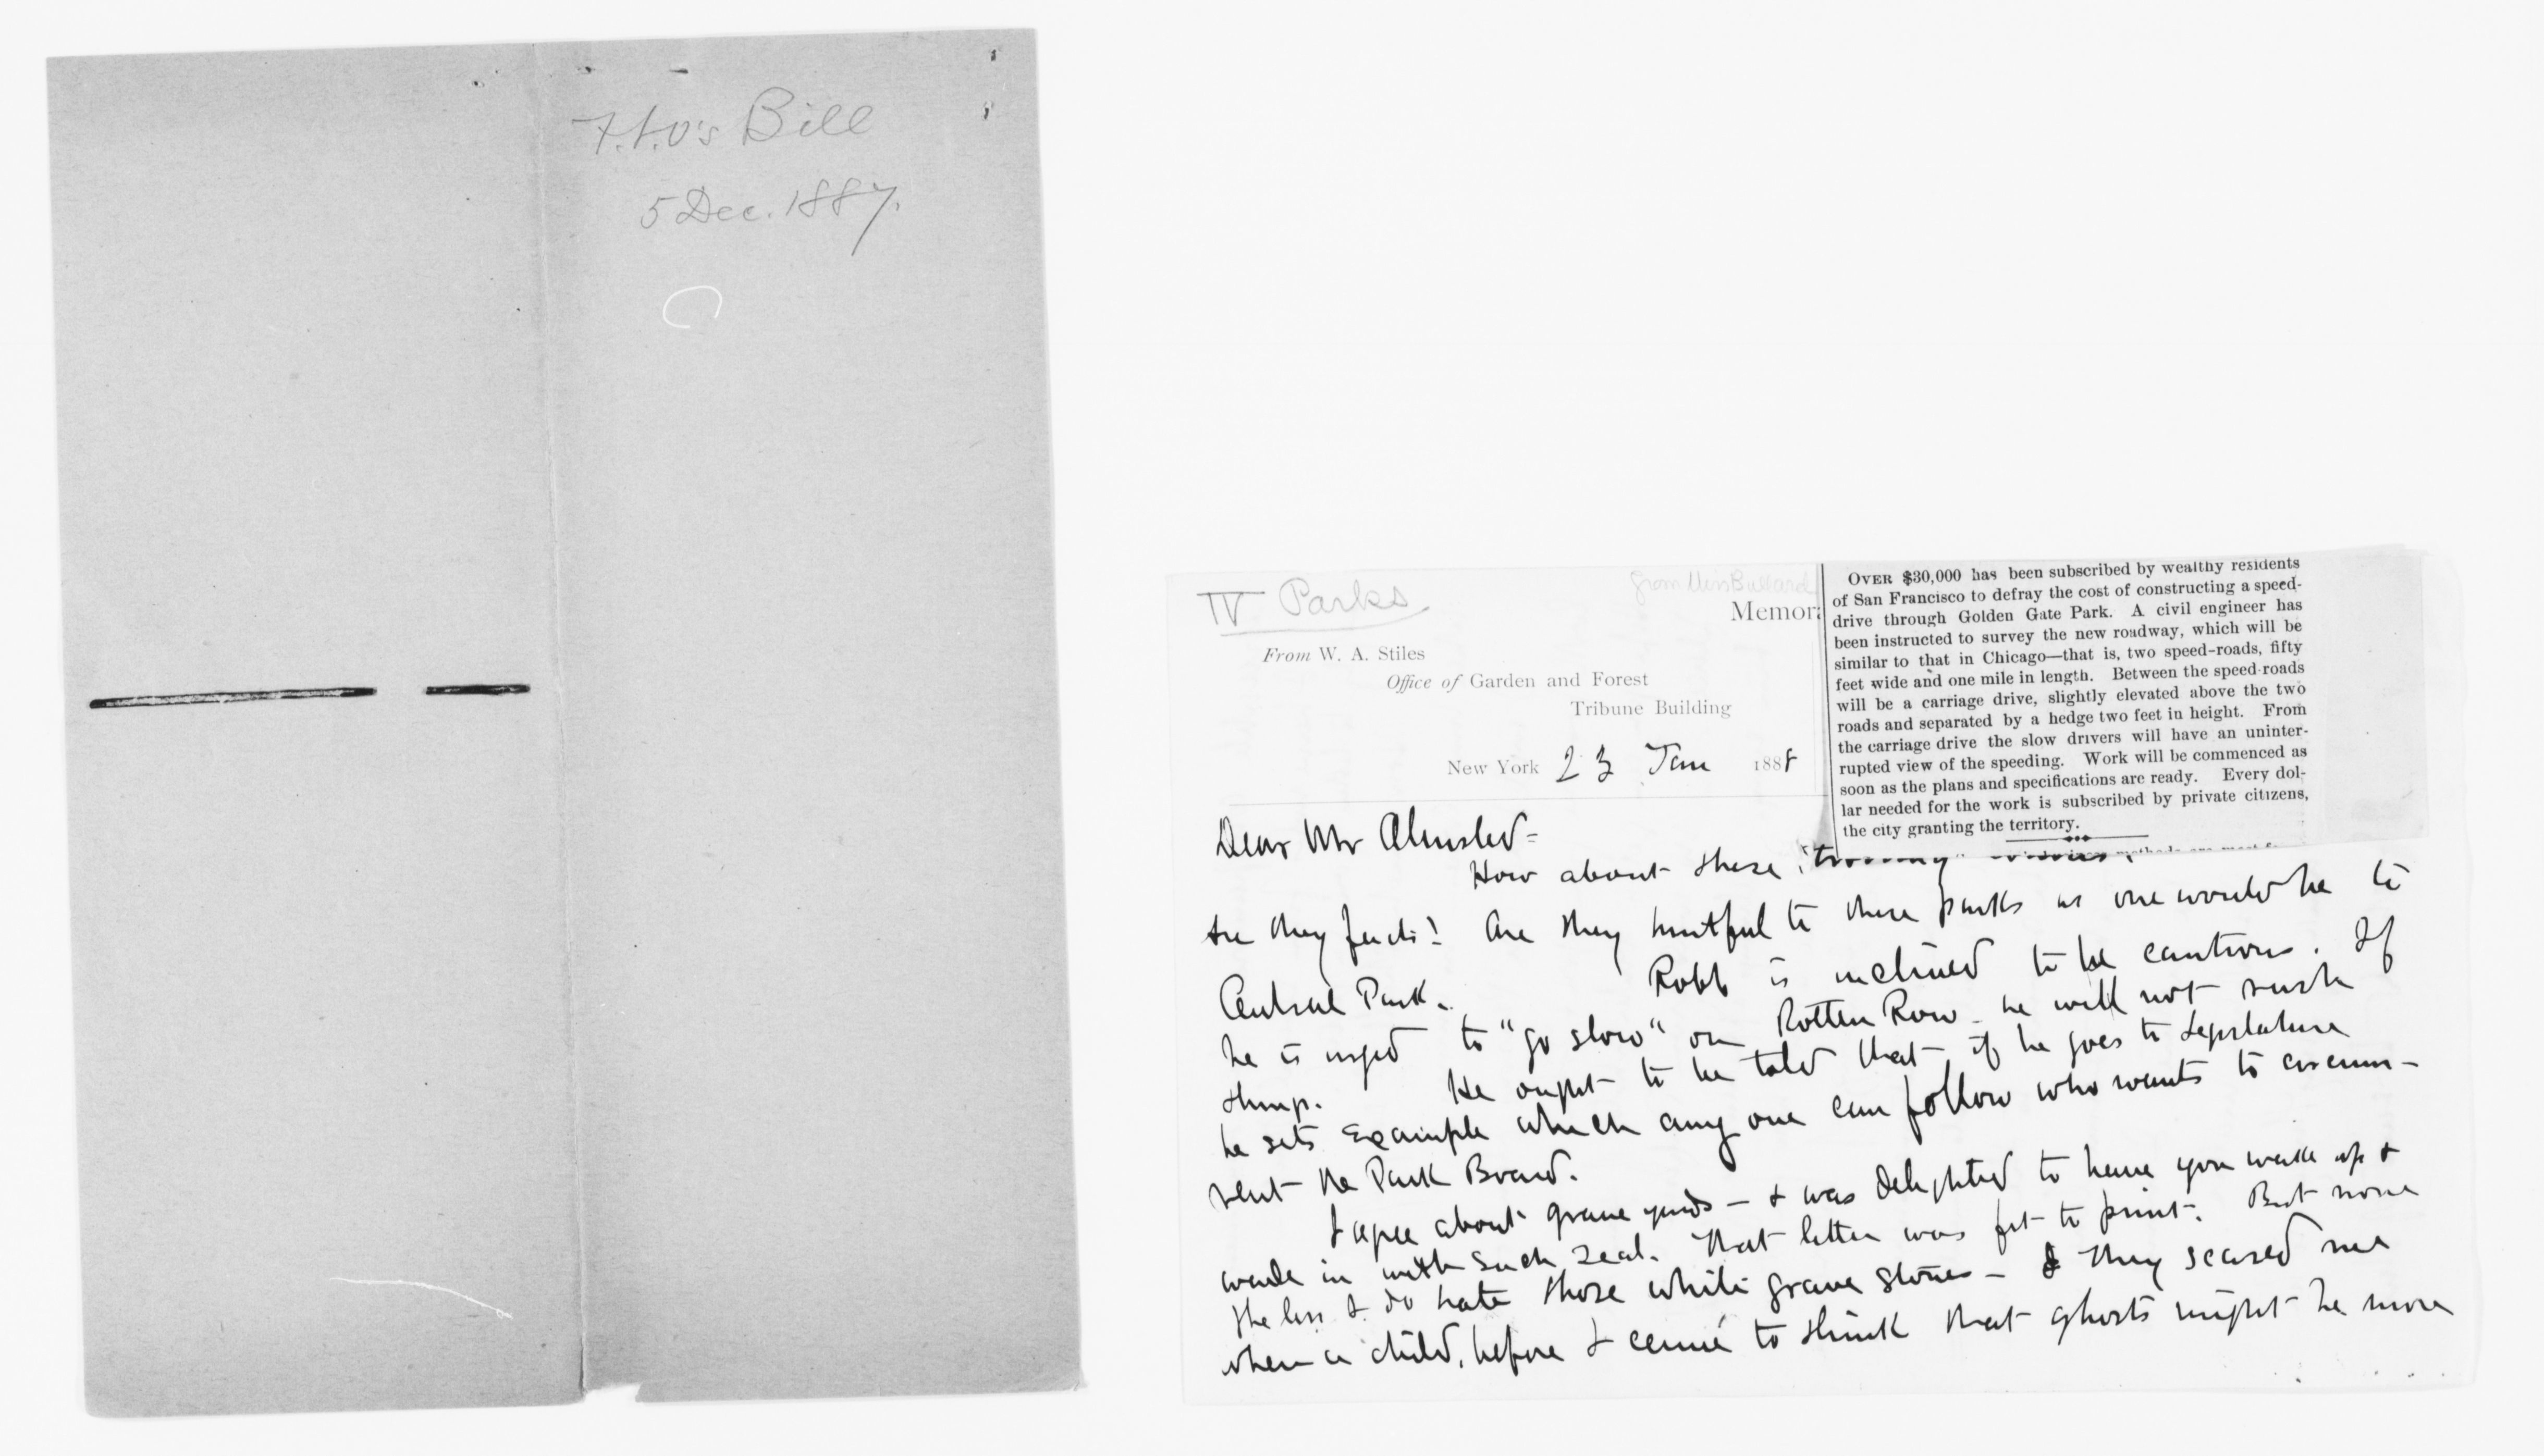 F.L.O's Bill
5 Dec. 1887.
IV Parks
from Miss Bullard
Memor
From W. A. Stiles
Office of Garden and Forest
Tribune Building
New York 23 Jan 1888
OVER $30,000 has been subscribed by wealthy residents
of San Francisco to defray the cost of constructing a speed-
drive through Golden Gate Park. A civil engineer has
been instructed to survey the new roadway, which will be
similar to that in Chicago—that is, two speed-roads, fifty
feet wide and one mile in length. Between the speed-roads
will be a carriage drive, slightly elevated above the two
roads and separated by a hedge two feet in height. From
the carriage drive the slow drivers will have an uninter-
rupted view of the speeding. Work will be commenced as
soon as the plans and specifications are ready. Every dol-
lar needed for the work is subscribed by private citizens,
the city granting the territory.
Dear Mr Olmsted-
How about these
Are they facts? Are they hurtful to these parks as one would be to
Central Park. Robb is inclined to be cautious. If
he is urged to "go slow" on Rotten Row he will not rush
things. He ought to be told that if he goes to Legislature
he sets example which any one can follow who wants to circum-
vent the Park Board.
I agree about grave yards — & was delighted to have you wake up &
wade in with such zeal. That letter was fit to print. But none
the less I do hate those white grave stones — They scared me
when a child, before I came to think that ghosts might be more